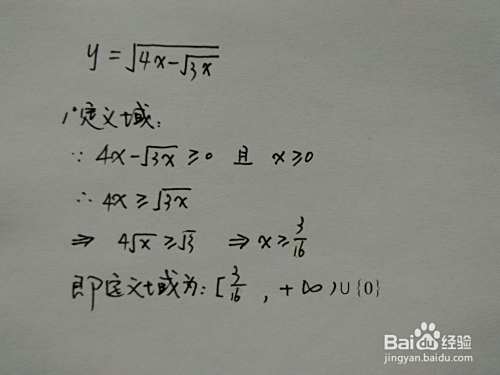 y = √(4x-√(3x))
1°定义域:
∵ 4x-√(3x) ≥0 且 x≥0
∴ 4x ≥ √(3x)
⇒ 4√x ≥ √3 ⇒ x ≥ 3/16
即定义域为: [3/16 , +∞)∪{0}
Baidu 经验
jingyan.baidu.com